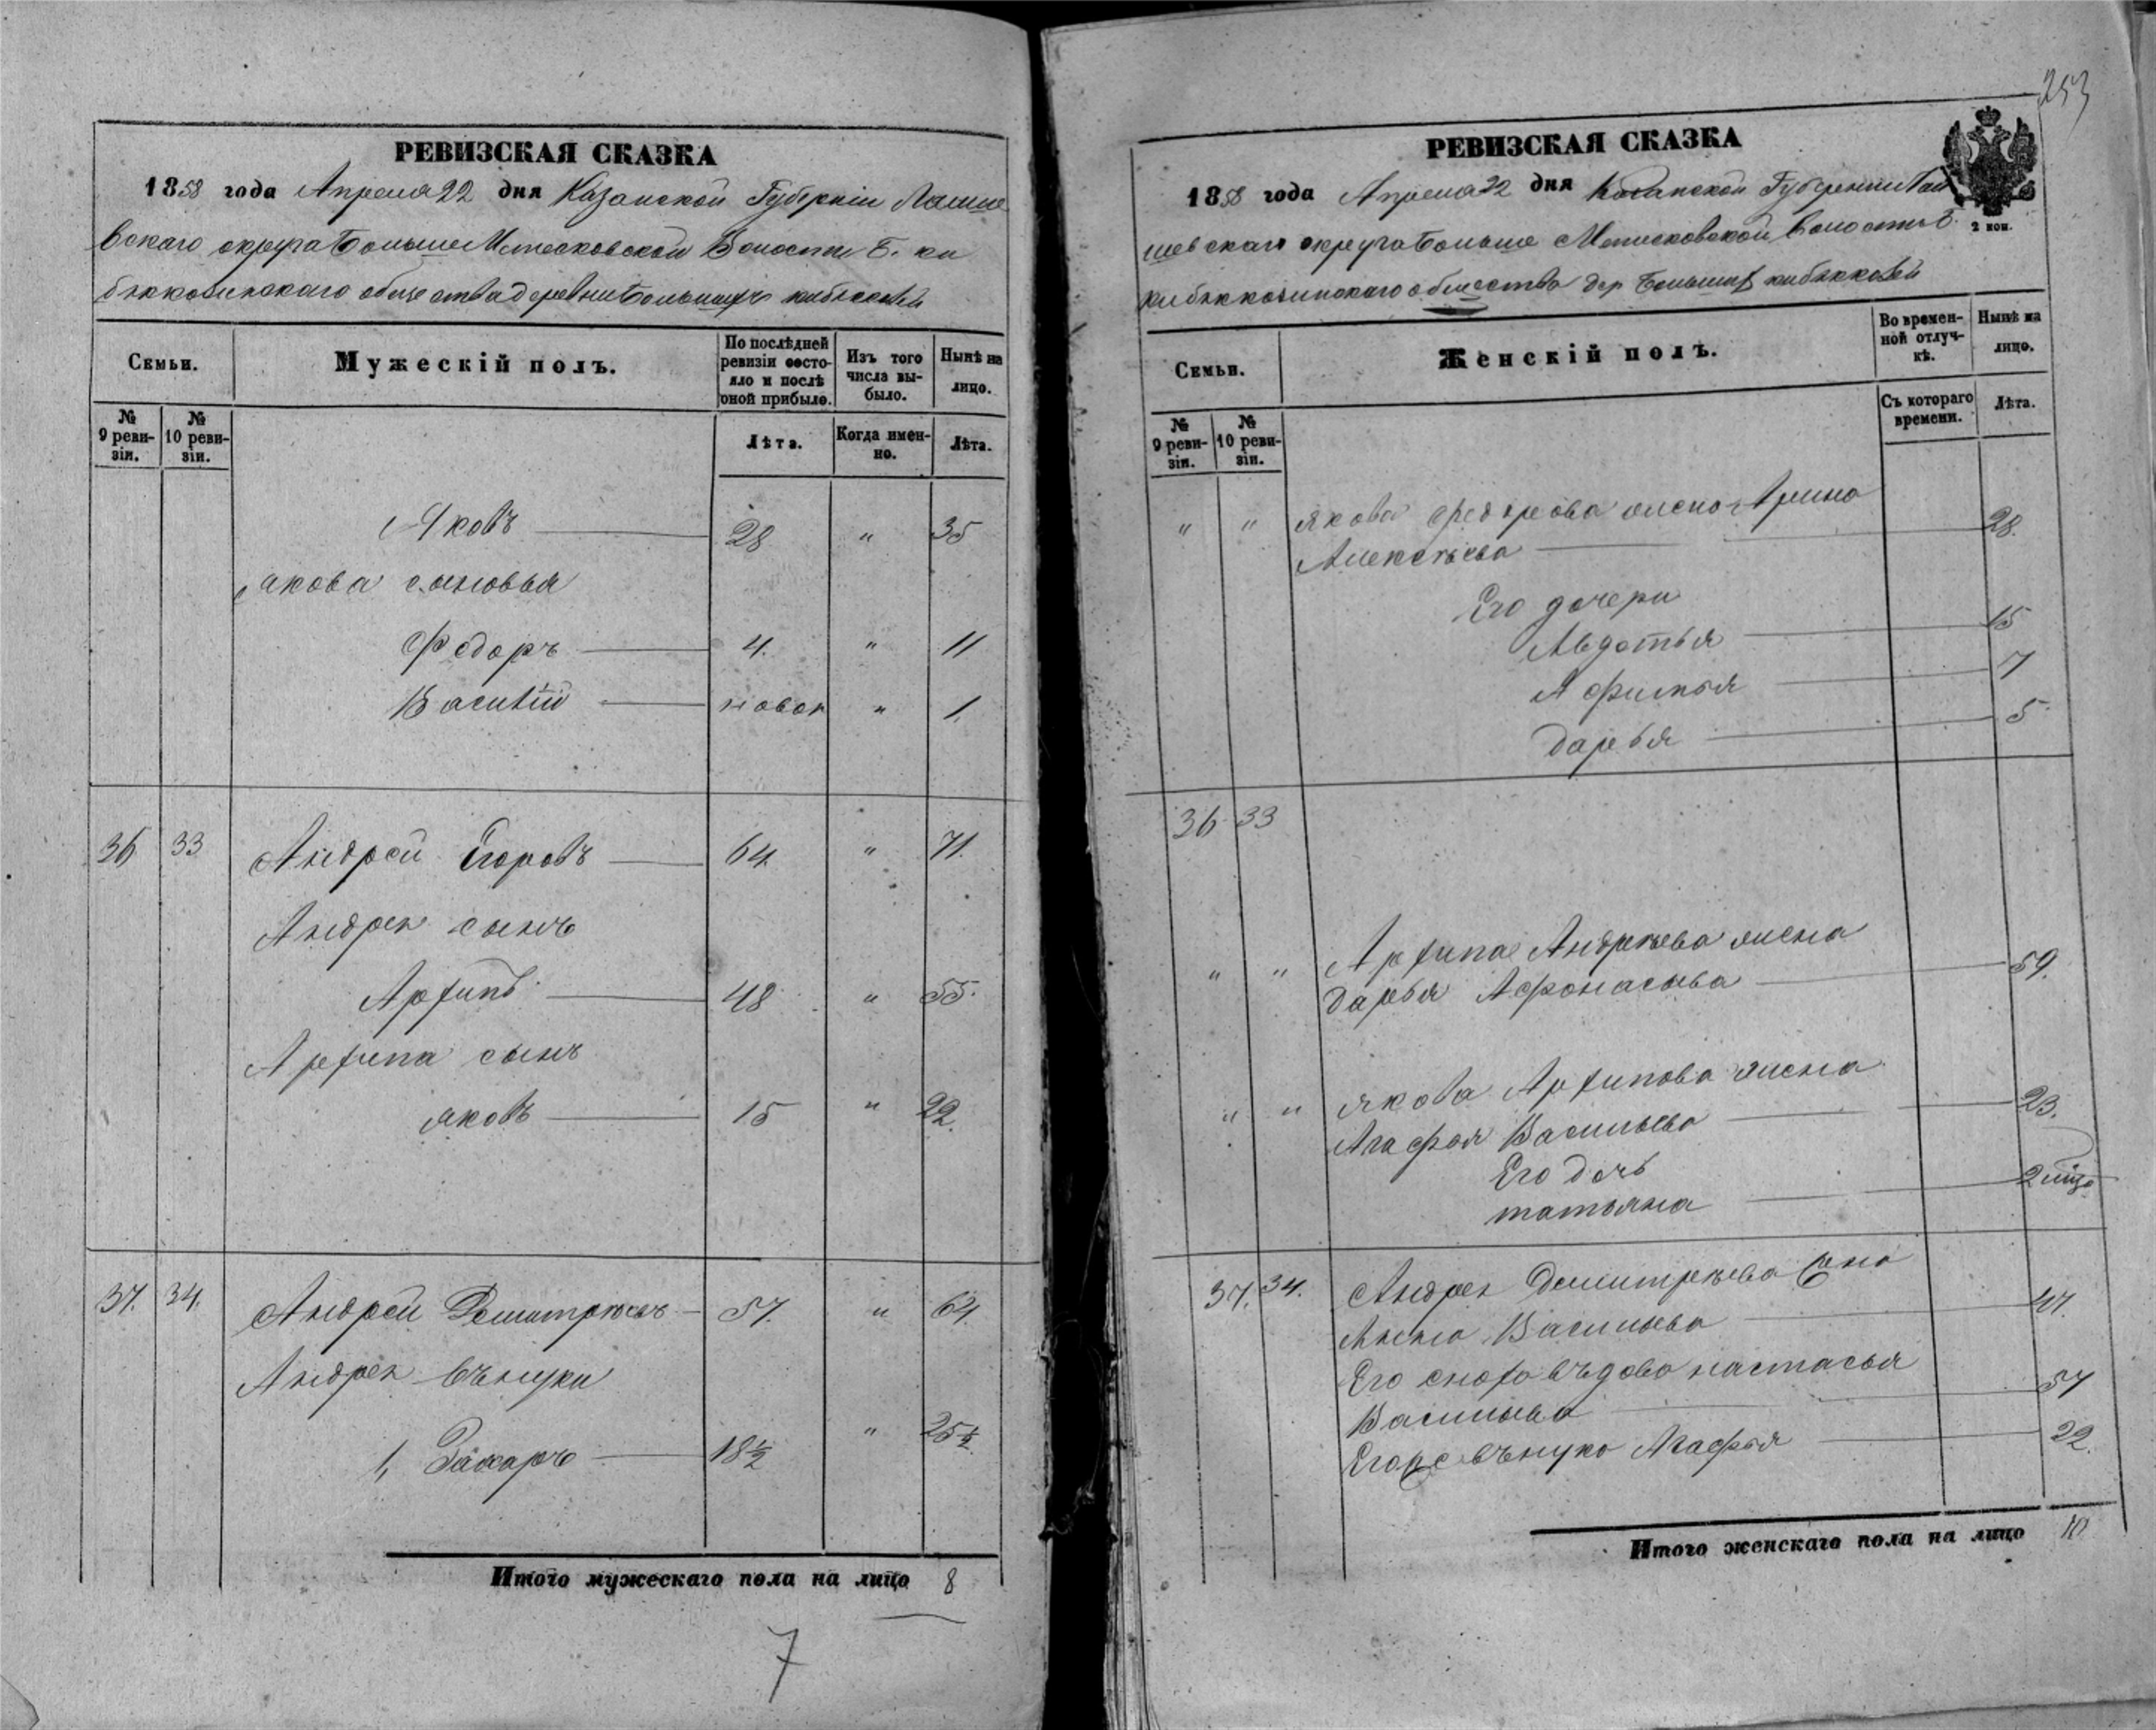 РЕВИЗСКАЯ СКАЗКА
1858 года Апреля 22 дня Казанской Губерніи Лаише
вскаго округа Больше Метесковской Волости Б. ки
бяккозинскаго общества деревни Большихъ кибякозей
Семьи.
Мужескій полъ.
По послѣдней ревизіи состояло и послѣ оной прибыло.
Изъ того числа выбыло.
Нынѣ на лицо.
№ 9 ревизіи.
№ 10 ревизіи.
Лѣта.
Когда именно.
Лѣта.
Яковъ 28 " 35
Якова сыновья
Федоръ 4. " 11
Василій новор " 1.
36 33 Андрей Егоровъ 64 " 71.
Андрея сынъ
Архипъ 48 " 55.
Архипа сынъ
яковъ 15 " 22.
37. 34. Андрей Демитріевъ 57. " 64.
Андрея внуки
1, Захаръ 18½ " 25½
Итого мужескаго пола на лицо 8
7
253
РЕВИЗСКАЯ СКАЗКА
1858 года Апреля 22 дня Казанской Губернии Лаи
шевскаго округа Больше Метисковской Волости Б.
кибяккозинскаго общества дер Большихъ кибяккозей
2 коп.
Семьи.
Женскій полъ.
Во временной отлучкѣ.
Нынѣ на лицо.
№ 9 ревизіи.
№ 10 ревизіи.
Съ котораго времени.
Лѣта.
" " якова Федорова жена Арина
Алексѣева 28.
Его дочери
Авдотья 15
Афимья 7
Дарья 5
36 33
" " Архипа Андреева жена
Дарья Афонасьева 59.
" " якова Архипова жена
Агафья Васильева 23.
Его дочь
татьяна
37. 34. Андрея Демитриева
Анна Васильева 47.
Его сноха въдова настасья
Васильева 57
внука Агафья 22.
Итого женскаго пола на лицо 10